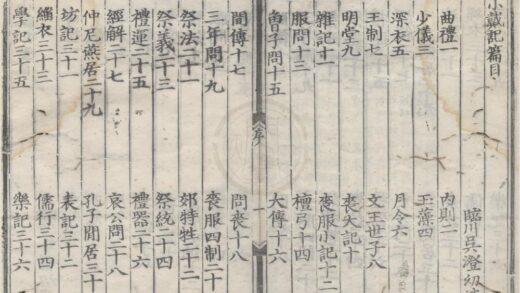 小戴記篇目
臨川吳澄幼
曲禮一 內則二
少儀三 玉藻四
深衣五 月令六
王制七 文王世子八
明堂九 喪大記十
雜記十一 喪服小記十二
服問十三 檀弓十四
曾子問十五 大傳十六
序 一
間傳十七 問喪十八
三年問十九 喪服四制二十
祭法二十一 郊特牲二十二
祭義二十三 祭統二十四
禮運二十五 禮器二十六
經解二十七 哀公問二十八
仲尼燕居二十九 孔子閒居三十
坊記三十一 表記三十二
緇衣三十三 儒行三十四
學記三十五 樂記三十六